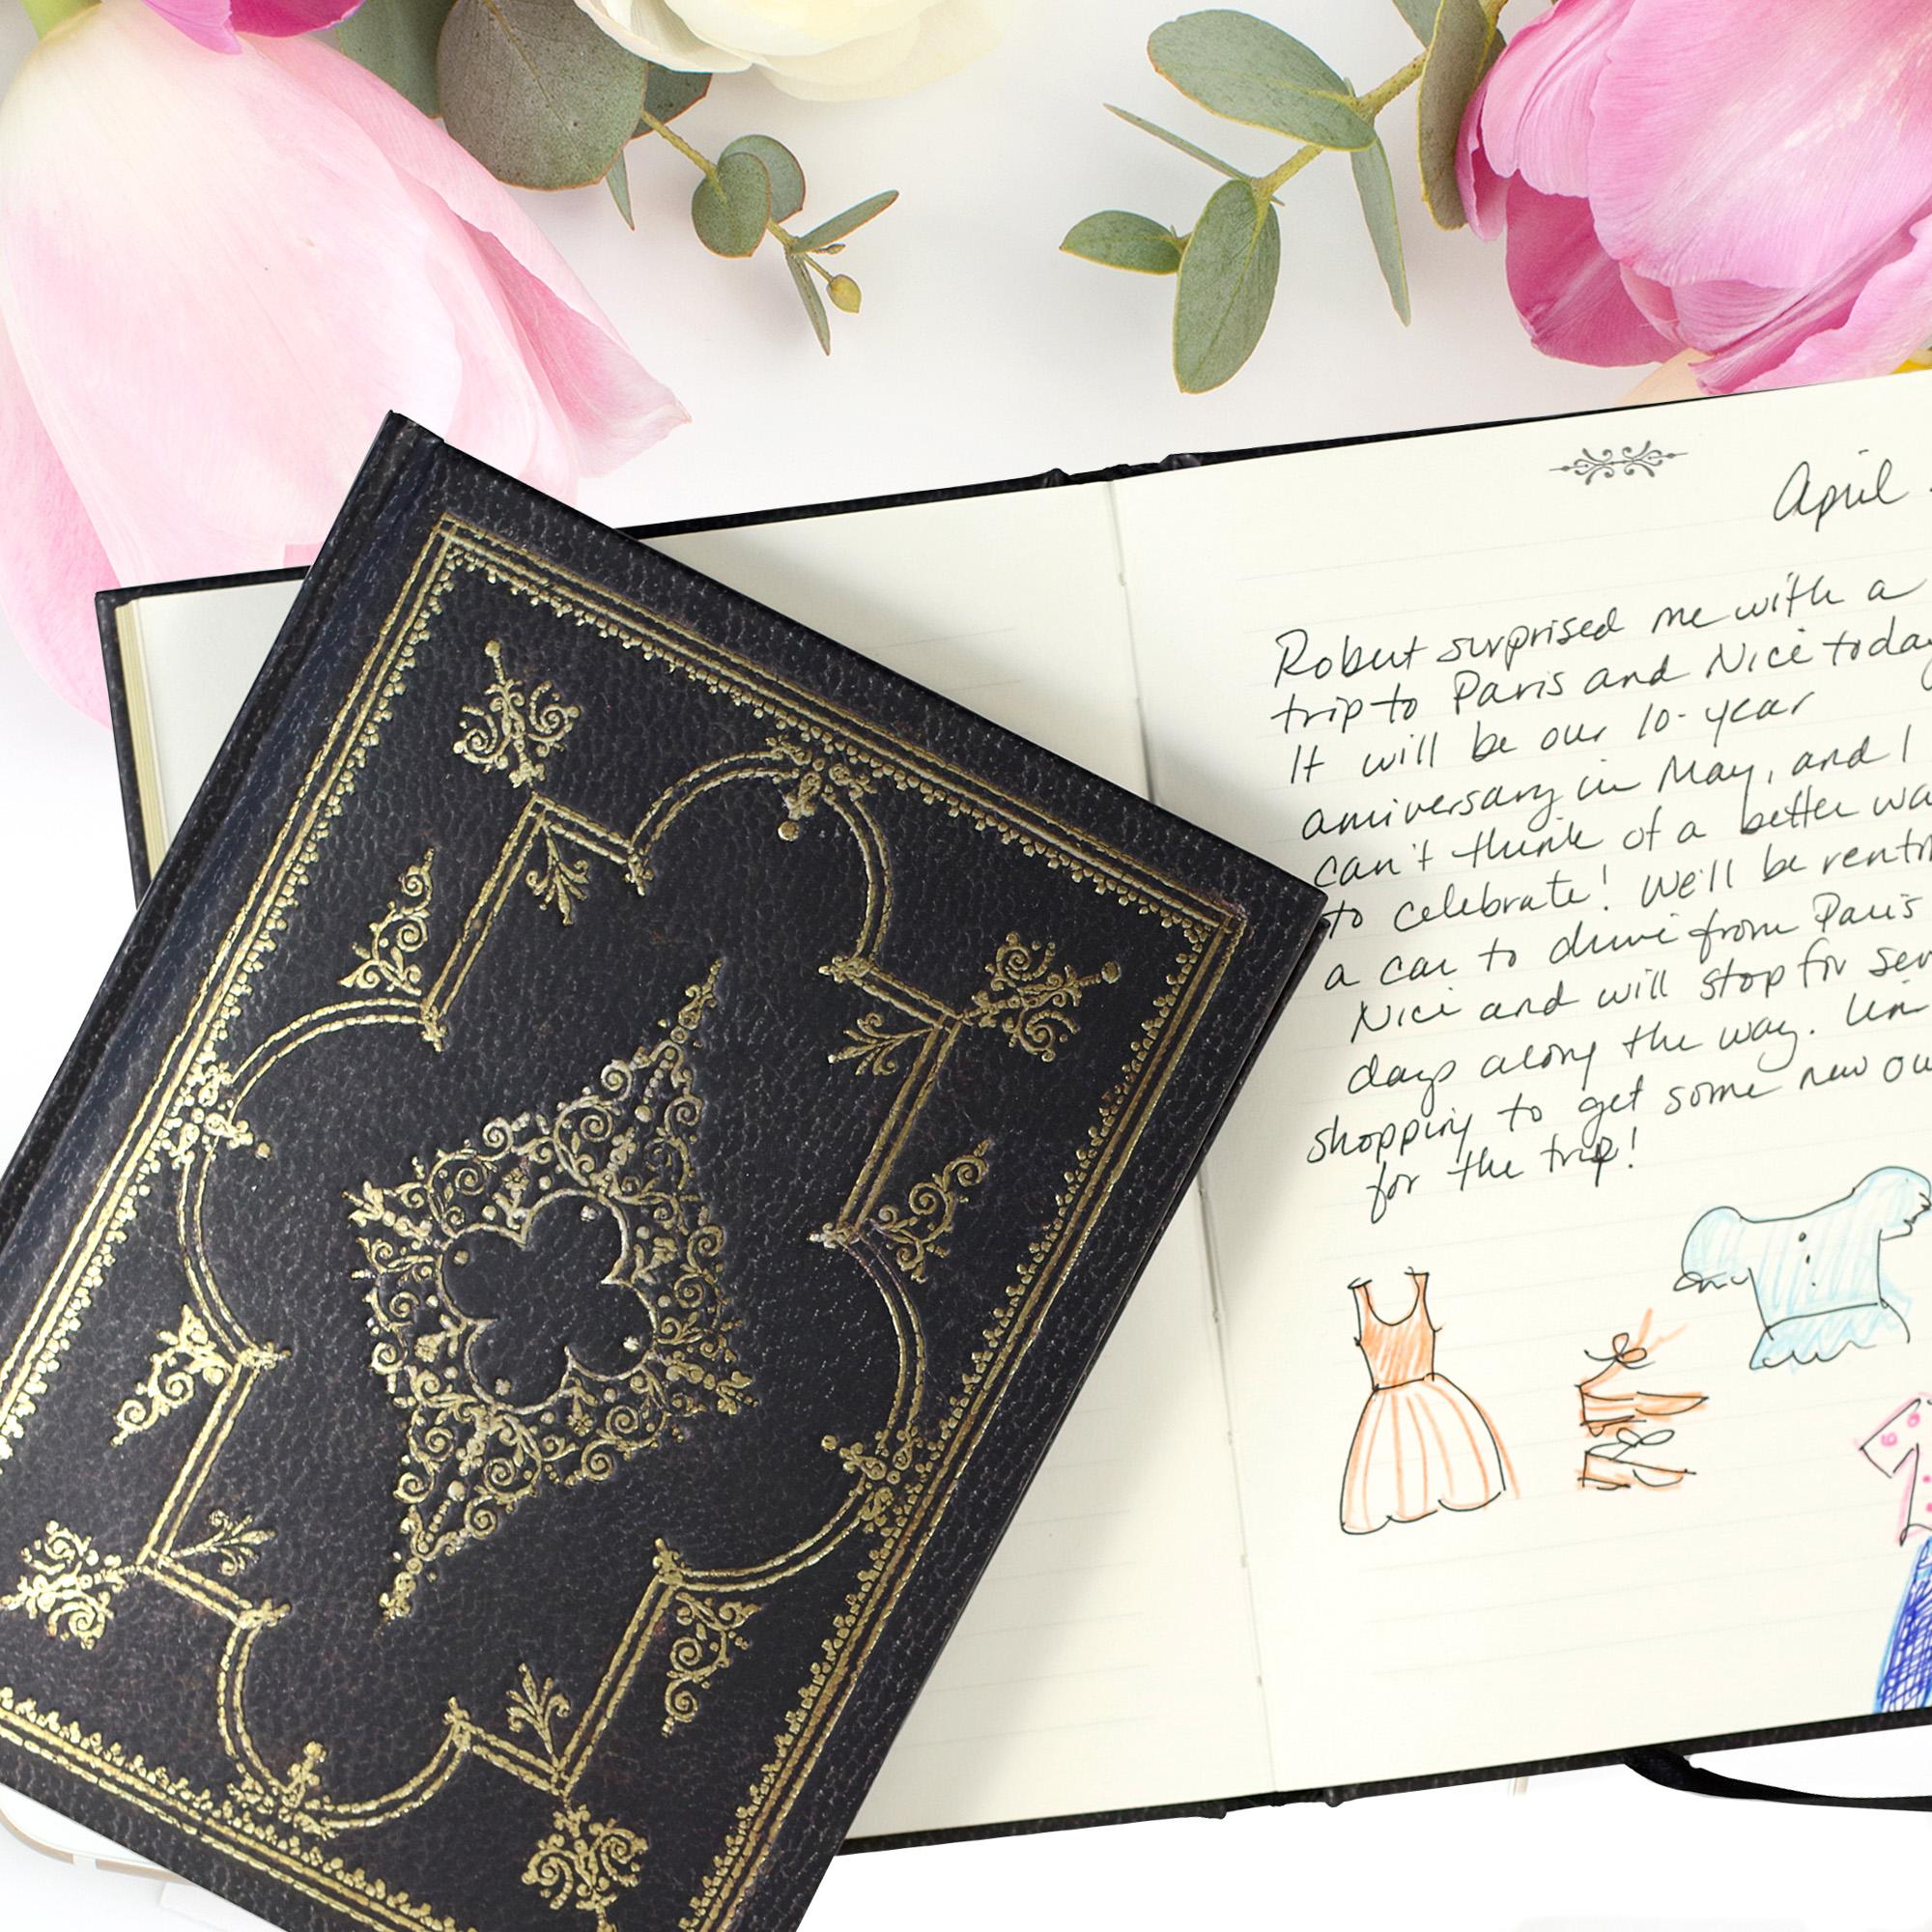 April
Robert surprised me with a
trip to Paris and Nice today
It will be our 10-year
anniversary in May, and I
can't think of a better wa
to celebrate! We'll be renti
a car to drive from Paris
Nice and will stop for sev
days along the way. I'm
shopping to get some new ou
for the trip!